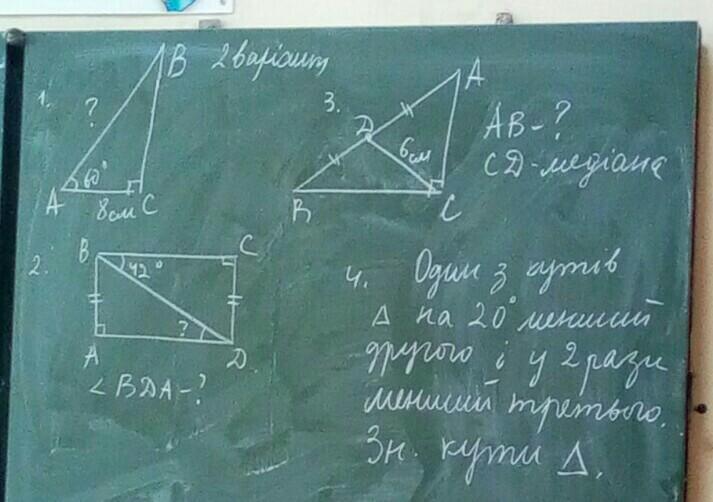 2 варіант
1.
B
?
60°
A
8см
C
2.
B
C
42°
?
A
D
∠BDA-?
3.
A
D
6см
B
C
AB-?
CD-медіана
4. Один з кутів
Δ на 20° менший
другого і у 2 рази
менший третього.
Зн. кути Δ.